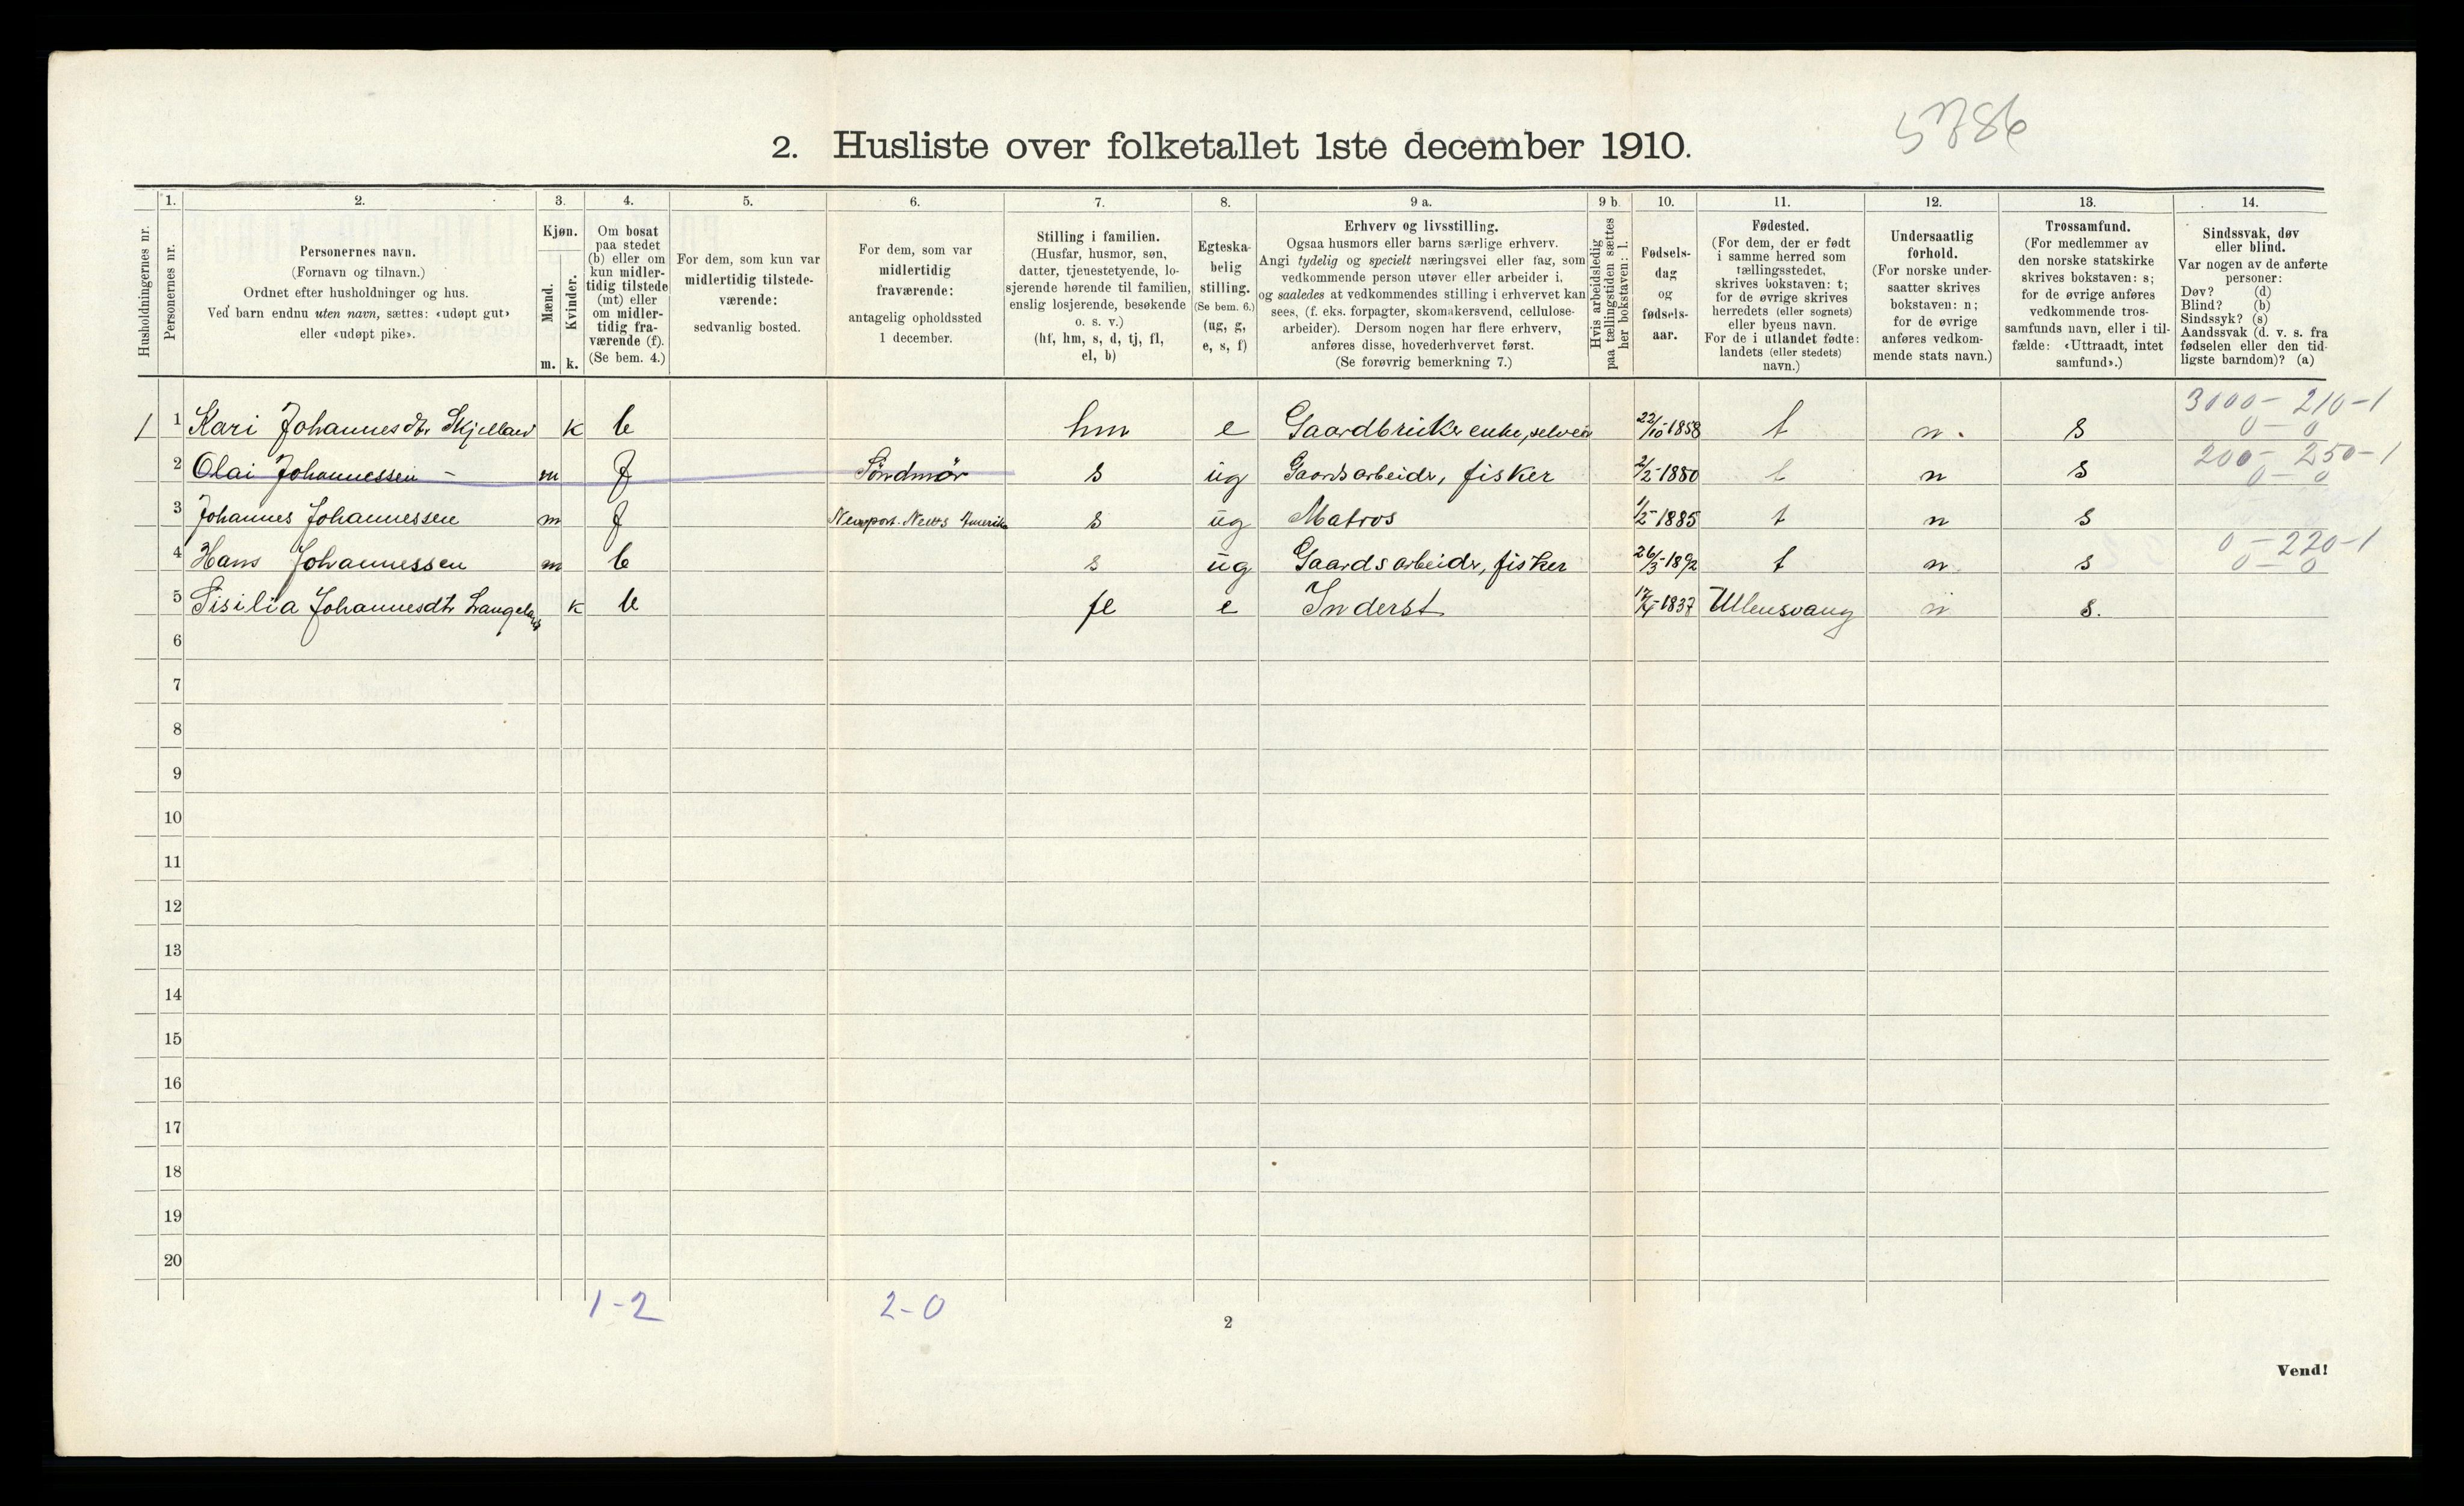 5786
2. Husliste over folketallet 1ste december 1910.
Husholdningernes nr.
1.
Personernes nr.
2.
Personernes navn.
(Fornavn og tilnavn.)
Ordnet efter husholdninger og hus.
Ved barn endnu uten navn, sættes: «udøpt gut»
eller «udøpt pike».
3.
Kjøn.
Mænd.
Kvinder.
m. k.
4.
Om bosat
paa stedet
(b) eller om
kun midler-
tidig tilstede
(mt) eller
om midler-
tidig fra-
værende (f).
(Se bem. 4.)
5.
For dem, som kun var
midlertidig tilstede-
værende:
sedvanlig bosted.
6.
For dem, som var
midlertidig
fraværende:
antagelig opholdssted
1 december.
7.
Stilling i familien.
(Husfar, husmor, søn,
datter, tjenestetyende, lo-
sjerende hørende til familien,
enslig losjerende, besøkende
o. s. v.)
(hf, hm, s, d, tj, fl,
el, b)
8.
Egteska-
belig
stilling.
(Se bem. 6.)
(ug, g,
e, s, f)
9 a.
Erhverv og livsstilling.
Ogsaa husmors eller barns særlige erhverv.
Angi tydelig og specielt næringsvei eller fag, som
vedkommende person utøver eller arbeider i,
og saaledes at vedkommendes stilling i erhvervet kan
sees, (f. eks. forpagter, skomakersvend, cellulose-
arbeider). Dersom nogen har flere erhverv,
anføres disse, hovederhvervet først.
(Se forøvrig bemerkning 7.)
9 b.
Hvis arbeidsledig
paa tællingstiden sættes
her bokstaven: l.
10.
Fødsels-
dag
og
fødsels-
aar.
11.
Fødested.
(For dem, der er født
i samme herred som
tællingsstedet,
skrives bokstaven: t;
for de øvrige skrives
herredets (eller sognets)
eller byens navn.
For de i utlandet fødte:
landets (eller stedets)
navn.)
12.
Undersaatlig
forhold.
(For norske under-
saatter skrives
bokstaven: n;
for de øvrige
anføres vedkom-
mende stats navn.)
13.
Trossamfund.
(For medlemmer av
den norske statskirke
skrives bokstaven: s;
for de øvrige anføres
vedkommende tros-
samfunds navn, eller i til-
fælde: «Uttraadt, intet
samfund».)
14.
Sindssvak, døv
eller blind.
Var nogen av de anførte
personer:
Døv? (d)
Blind? (b)
Sindssyk? (s)
Aandssvak (d. v. s. fra
fødselen eller den tid-
ligste barndom)? (a)
3000 - 210 - 1
1 1 Kari Johannesdtr Skjelland k b hm e Gaardbruker enke, selveier 22/10-1858 t n. s 0 - 0
200 - 250 - 1
2 Olai Johannessen - m f Söndmör s ug Gaardsarbeider, fisker 2/2-1880 t n s 0 - 0
3 Johannes Johannessen m f Newport-News Amerika s ug Matros 1/2-1885 t n s
0 - 220 - 1
4 Hans Johannessen m b s ug Gaardsarbeider, fisker 26/3-1892 t n s 0 - 0
5 Sisilia Johannesdtr Langeland k b fl e Inderst 1837 Ullensvang n s.
6
7
8
9
10
11
12
13
14
15
16
17
18
19
20
1-2 2-0
2
Vend!